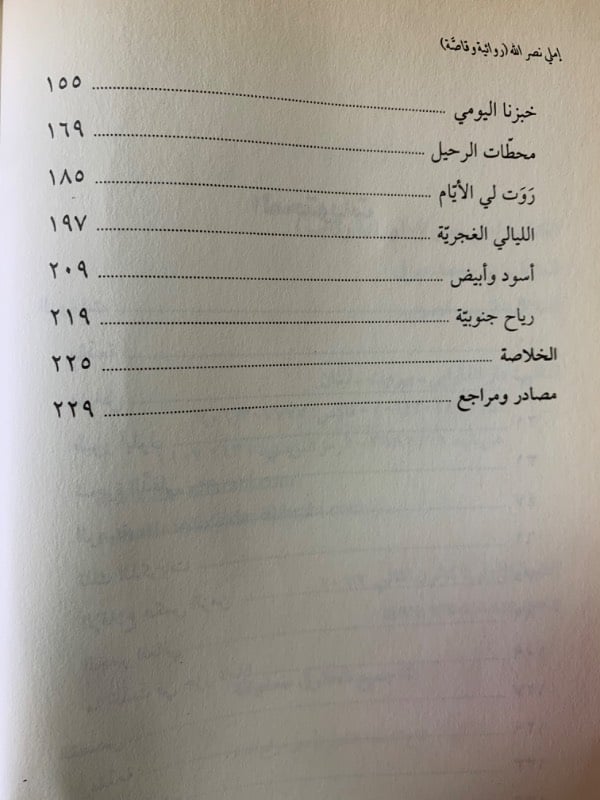 إملي نصر الله (روائية وقاصّة)
خبزنا اليومي ........ ١٥٥
محطّات الرحيل ........ ١٦٩
رَوَت لي الأيّام ........ ١٨٥
الليالي الغجريّة ........ ١٩٧
أسود وأبيض ........ ٢٠٩
رياح جنوبيّة ........ ٢١٩
الخلاصة ........ ٢٢٥
مصادر ومراجع ........ ٢٢٩